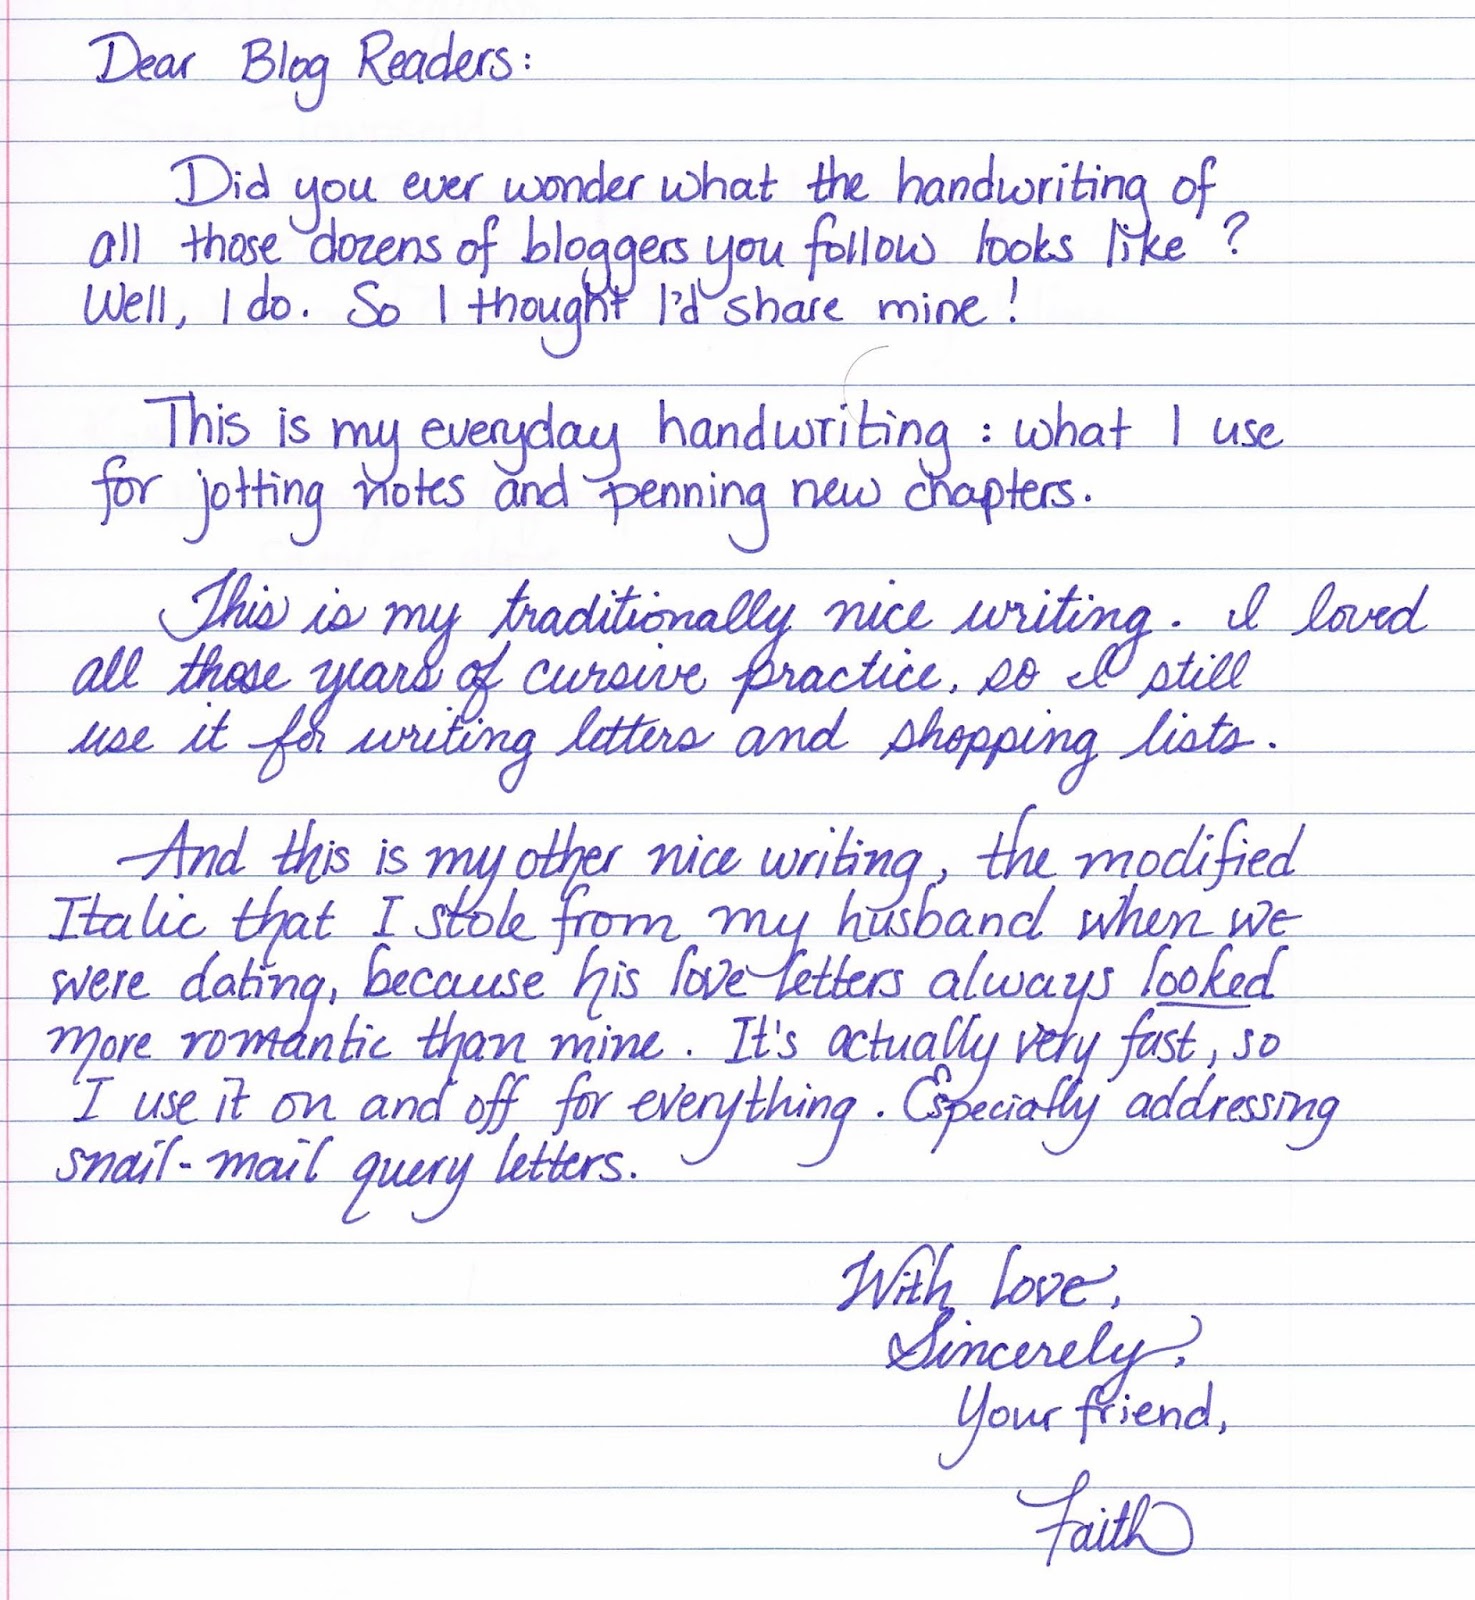 Dear Blog Readers:
Did you ever wonder what the handwriting of
all those dozens of bloggers you follow looks like?
Well, I do. So I thought I'd share mine!
This is my everyday handwriting: what I use
for jotting notes and penning new chapters.
This is my traditionally nice writing. I loved
all those years of cursive practice, so I still
use it for writing letters and shopping lists.
And this is my other nice writing, the modified
Italic that I stole from my husband when we
were dating, because his love-letters always looked
more romantic than mine. It's actually very fast, so
I use it on and off for everything. Especially addressing
snail-mail query letters.
With love,
Sincerely,
Your friend,
Faith